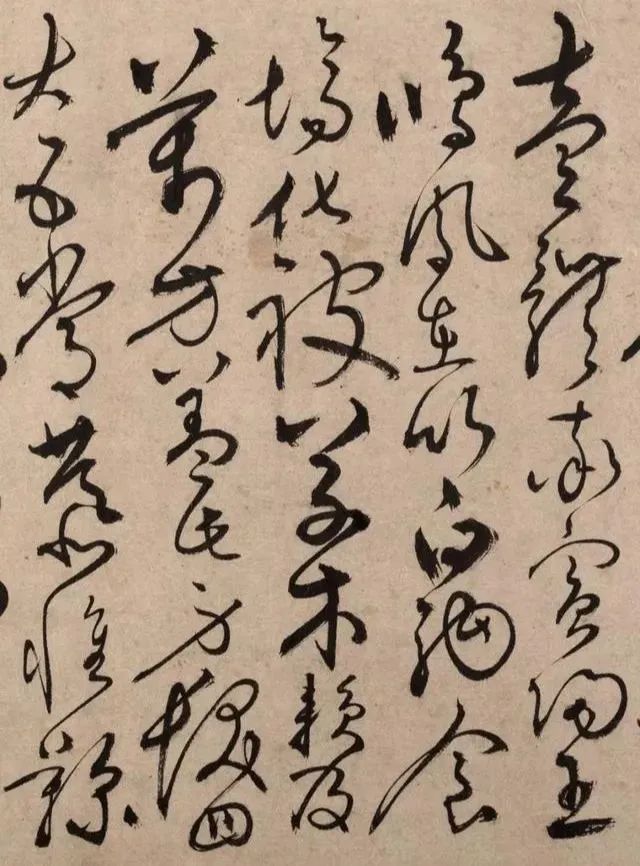 壹體率賓歸王
鳴鳳在竹白駒食
場化被草木賴及
萬方蓋此身髮四
大五常恭惟鞠